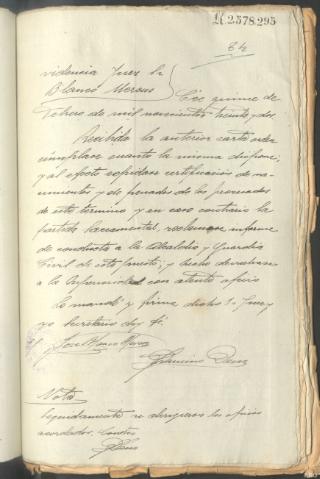 K.2.578.295
64
videncia Juez Sr.
Blanco Meroso
Cée quince de
Febrero de mil novecientos treinta y dos
Recibida la anterior carta orden
cúmplase cuanto la misma dispone;
y al efecto expídase certificación de na-
cimientos y de penales de los procesados
de este termino y en caso contrario la
partida Sacramental, reclamese informe
de conducta a la Alcaldía y Guardia
Civil de este Puesto; y hecho devuelvase
a la Superioridad con atento oficio
Lo mandó y firma dicho Sr. Juez
yo Secretario doy fé.
José Blanco
Nota
Seguidamente se dirigieron los oficios
acordados.